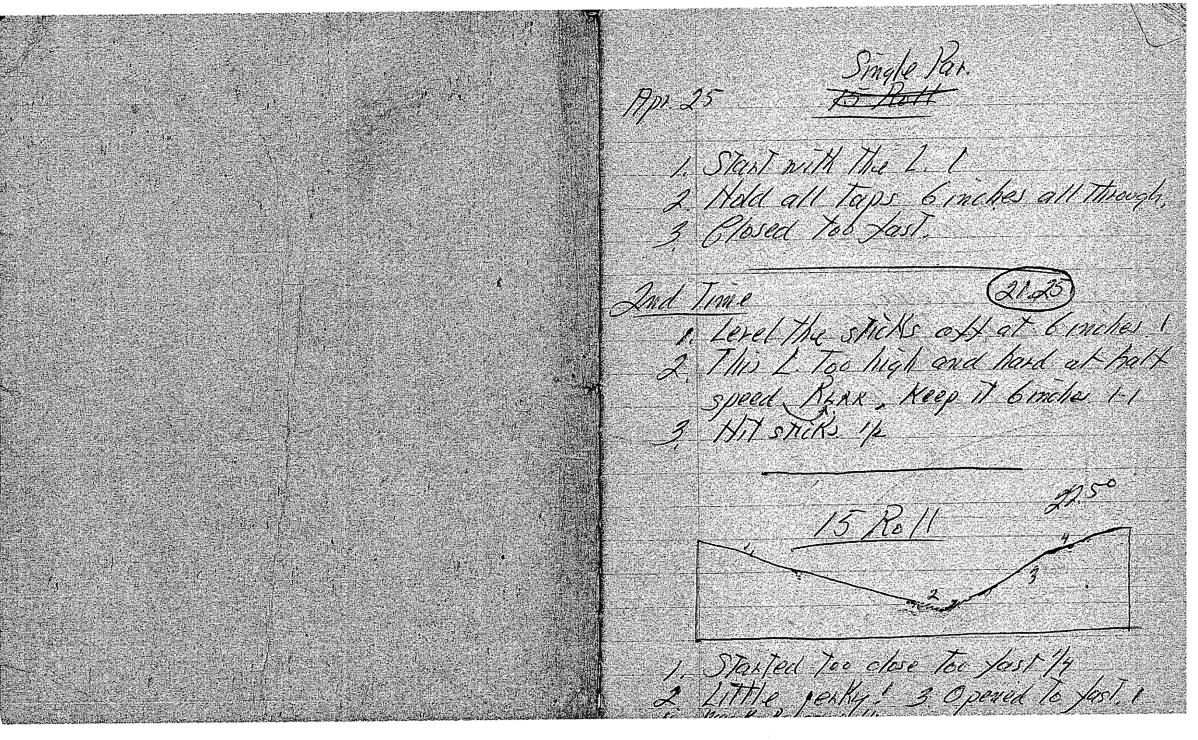 Single Par.
Apr. 25
15 Roll
1. Start with the L. 1
2. Hold all Taps 6 inches all Through.
3. Closed Too fast.
2nd Time
21.25
1. Level the sticks off at 6 inches 1
2. This L Too high and hard at half
speed, , Keep it 6 inches 1-1
3. Hit sticks 1/2
22.5°
15 Roll
4
3
2
1. Started Too close Too fast 1/4
2 Little jerky! 3 Opened To fast. 1